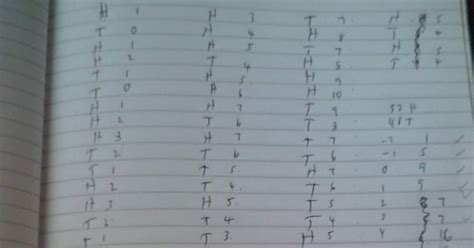 H 1 H 3 T 7 H 5
T 0 H 4 H 8 T 4
H 1 H 5 T 7 H 5
H 2 T 4 H 8 T 4
T 1 H 5 H 9
T 0 H 6 H 10
H 1 H 7 T 9 53 H
H 2 T 6 T 8 48 T
H 3 H 7 T 7 -2 1
T 2 T 6 T 6 -1 5
T 1 T 5 H 7 0 9
H 2 T 4 T 6 1 9
H 3 H 5 T 5 2 7
T 2 T 4 T 4 3 7
T 1 T 3 H 5 4 16